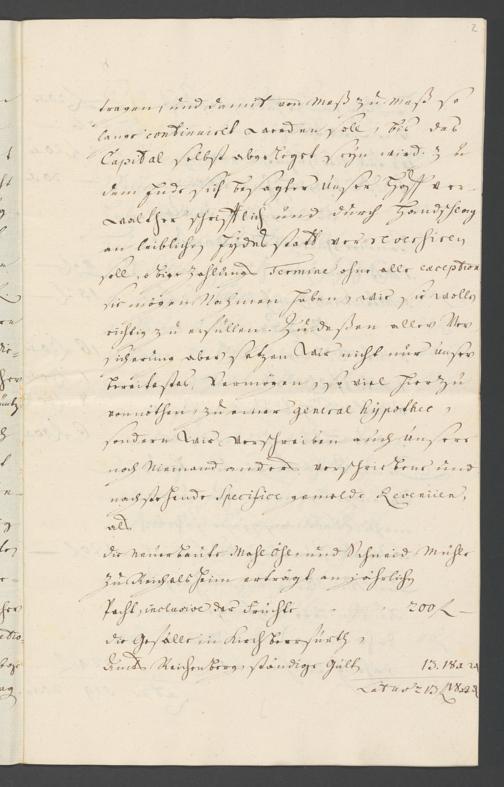 2
tragen, und damit von Meß zu Meß so
lang continuiert werden soll, bis das
Capital selbst abgeleget seyn wird. Zu
dem Ende sich besagter Unser Hoff ver-
walther schrifftlich und durch Handschlag
an leiblichen Eydes statt reversiren
soll, obige Zahlungs Termine ohne alle exception
sie mögen Nahmen haben, wie sie wollen
richtig zu erfüllen. Zu deßen aller Ver
sicherung aber setzen Wir nicht nur Unser
bereitestes Vermögen, so viel hierzu
vonnöthen, zu einer general hypothec,
sondern Wir verschreiben auch Unsere
noch Niemand anders verschriebene und
nachstehende Specifice gemelde Revenüen,
als
die Neuerbaute Mahl Öhl und Schneid Mühle
zu Reichelsheim erträgt an jährlich
Pacht, inclusive der Früchte 200 f. —
die Gefälle in Kirchbeerfurth,
Amts Reichenberg, ständige Gült 13. 18
Latus 213 f 18